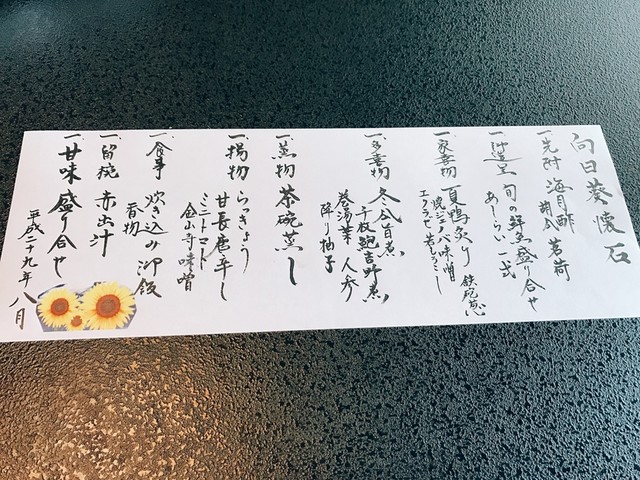 向日葵懐石
一、先附 海月酢 茗荷
胡瓜
一、御造里 旬の鮮魚盛り合せ
あしらい一式
一、家喜物 夏鴨炙り 鉄砲葱
焼ジェノバ味噌
エクラゼ
一、多喜物 冬瓜旨煮
千枚鮑吉野煮
巻湯葉 人参
降り柚子
一、蒸物 茶碗蒸し
一、揚物 らっきょう
甘長唐辛し
ミニトマト
金山寺味噌
一、食事 炊き込み御飯
香物
一、留椀 赤出汁
一、甘味 盛り合せ
平成二十九年八月